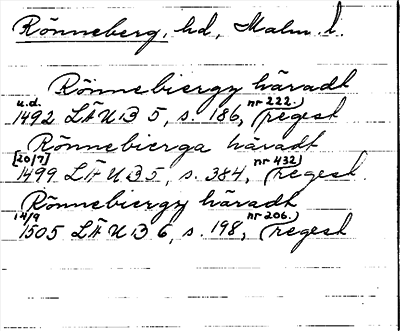 Rönneberg, hd, Malm. l.
Rönnebiergy häradt
u.d. nr 222.)
1492 LÄUB 5, s. 186, (regest
Rönnebierga häradt
[20/7] nr 432)
1499 LÄUB 5, s. 384, (regest.
Rönnebiergy häradt
14/9 nr 206.)
1505 LÄUB 6, s. 198, (regest